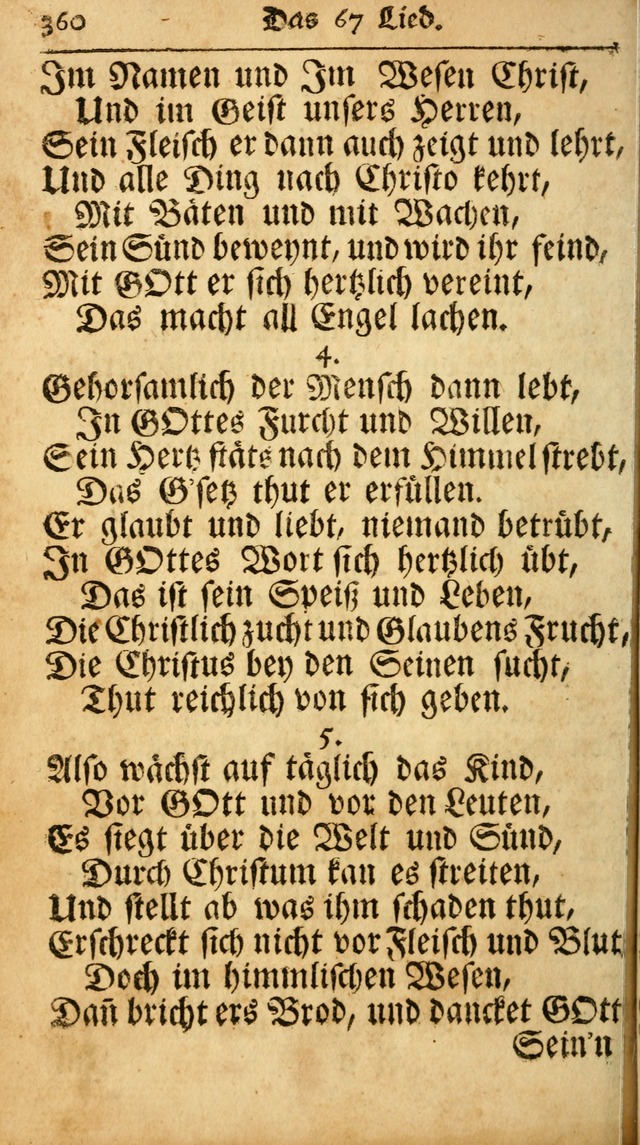 360 Das 67 Lied.
Im Namen und Im Wesen Christ,
Und im Geist unsers Herren,
Sein Fleisch er dann auch zeigt und lehrt,
Und alle Ding nach Christo kehrt,
Mit Bäten und mit Wachen,
Sein Sünd beweynt, und wird ihr feind,
Mit GOtt er sich hertzlich vereint,
Das macht all Engel lachen.
4.
Gehorsamlich der Mensch dann lebt,
In GOttes Furcht und Willen,
Sein Hertz stäts nach dem Himmel strebt,
Das G'setz thut er erfüllen.
Er glaubt und liebt, niemand betrübt,
In GOttes Wort sich hertzlich übt,
Das ist sein Speiß und Leben,
Die Christlich zucht und Glaubens Frucht,
Die Christus bey den Seinen sucht,
Thut reichlich von sich geben.
5.
Also wächst auf täglich das Kind,
Vor GOtt und vor den Leuten,
Es siegt über die Welt und Sünd,
Durch Christum kan es streiten,
Und stellt ab was ihm schaden thut,
Erschreckt sich nicht vor Fleisch und Blut
Doch im himmlischen Wesen,
Dañ bricht ers Brod, und dancket GOtt
Sein'n